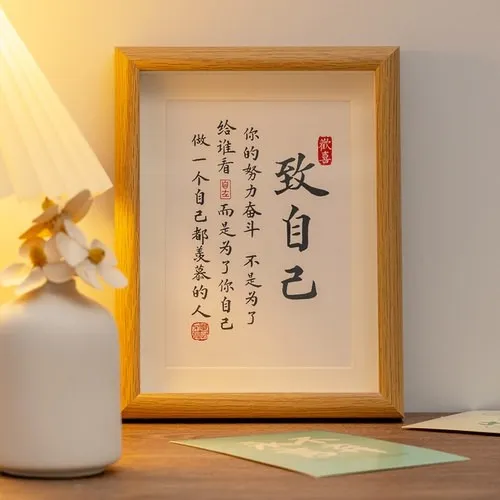 歡喜
致自己
你的努力奋斗 不是为了
给谁看 自在 而是为了你自己
做一个自己都羡慕的人